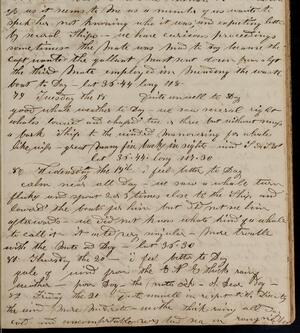 us it seems to me as a minute or 2 we wants to
speak her, not knowing who it was, and expecting letters
by several Ships - we have curious proceedings
sometimes the mate was mad to day because the
capt wanted the gallant mast sent down
the third mate employed in mending the waist
boat to Day - lat 35-44 long 118.
79 Tuesday the 18 Quite unwell to Day
good weather to Day - saw several right
whales lowered and chased two or three but without success
a bark Ship to the windward manoeuvring for whales
like wise - great many fin backs in sight wind
lat 35.44. long 117.30
80 Wednesday the 19th I feel better to Day
calm near all Day - we saw a whale turn
flukes and spout 2 or 3 times close to the Ship, and
lowered the boats for him but did not see him
afterwards - we did not know what kind of a whale
to call it - it acted very singular - more trouble
with the mate to Day - lat 35-30
81 Thursday the 20 - I feel better to Day
gale of wind from the E N E thick rainy
weather - poor Day - the mate
82 Friday the 21 Quite unwell in respect to the Dysentry
the wind more moderate - with thick rainy all day
but one uncomfortable